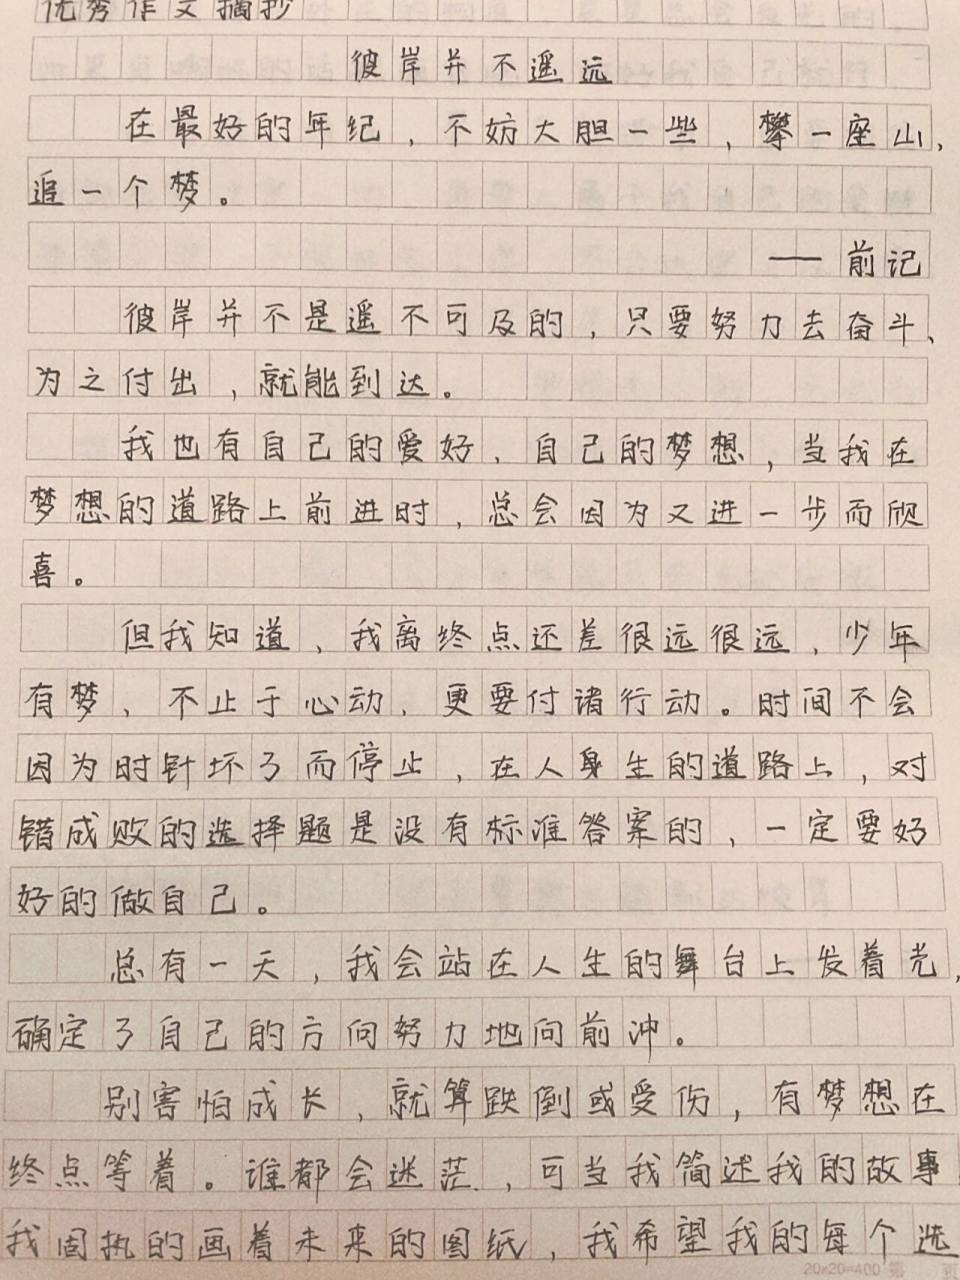 优秀作文摘抄
彼岸并不遥远
在最好的年纪，不妨大胆一些，攀一座山，
追一个梦。
——前记
彼岸并不是遥不可及的，只要努力去奋斗、
为之付出，就能到达。
我也有自己的爱好、自己的梦想，当我在
梦想的道路上前进时，总会因为又进一步而欣
喜。
但我知道，我离终点还差很远很远，少年
有梦、不止于心动、更要付诸行动。时间不会
因为时针坏了而停止，在人身生的道路上，对
错成败的选择题是没有标准答案的，一定要好
好的做自己。
总有一天，我会站在人生的舞台上发着光，
确定了自己的方向努力地向前冲。
别害怕成长，就算跌倒或受伤，有梦想在
终点等着。谁都会迷茫，可当我简述我的故事
我固执的画着未来的图纸，我希望我的每个选
20×20=400 第 页